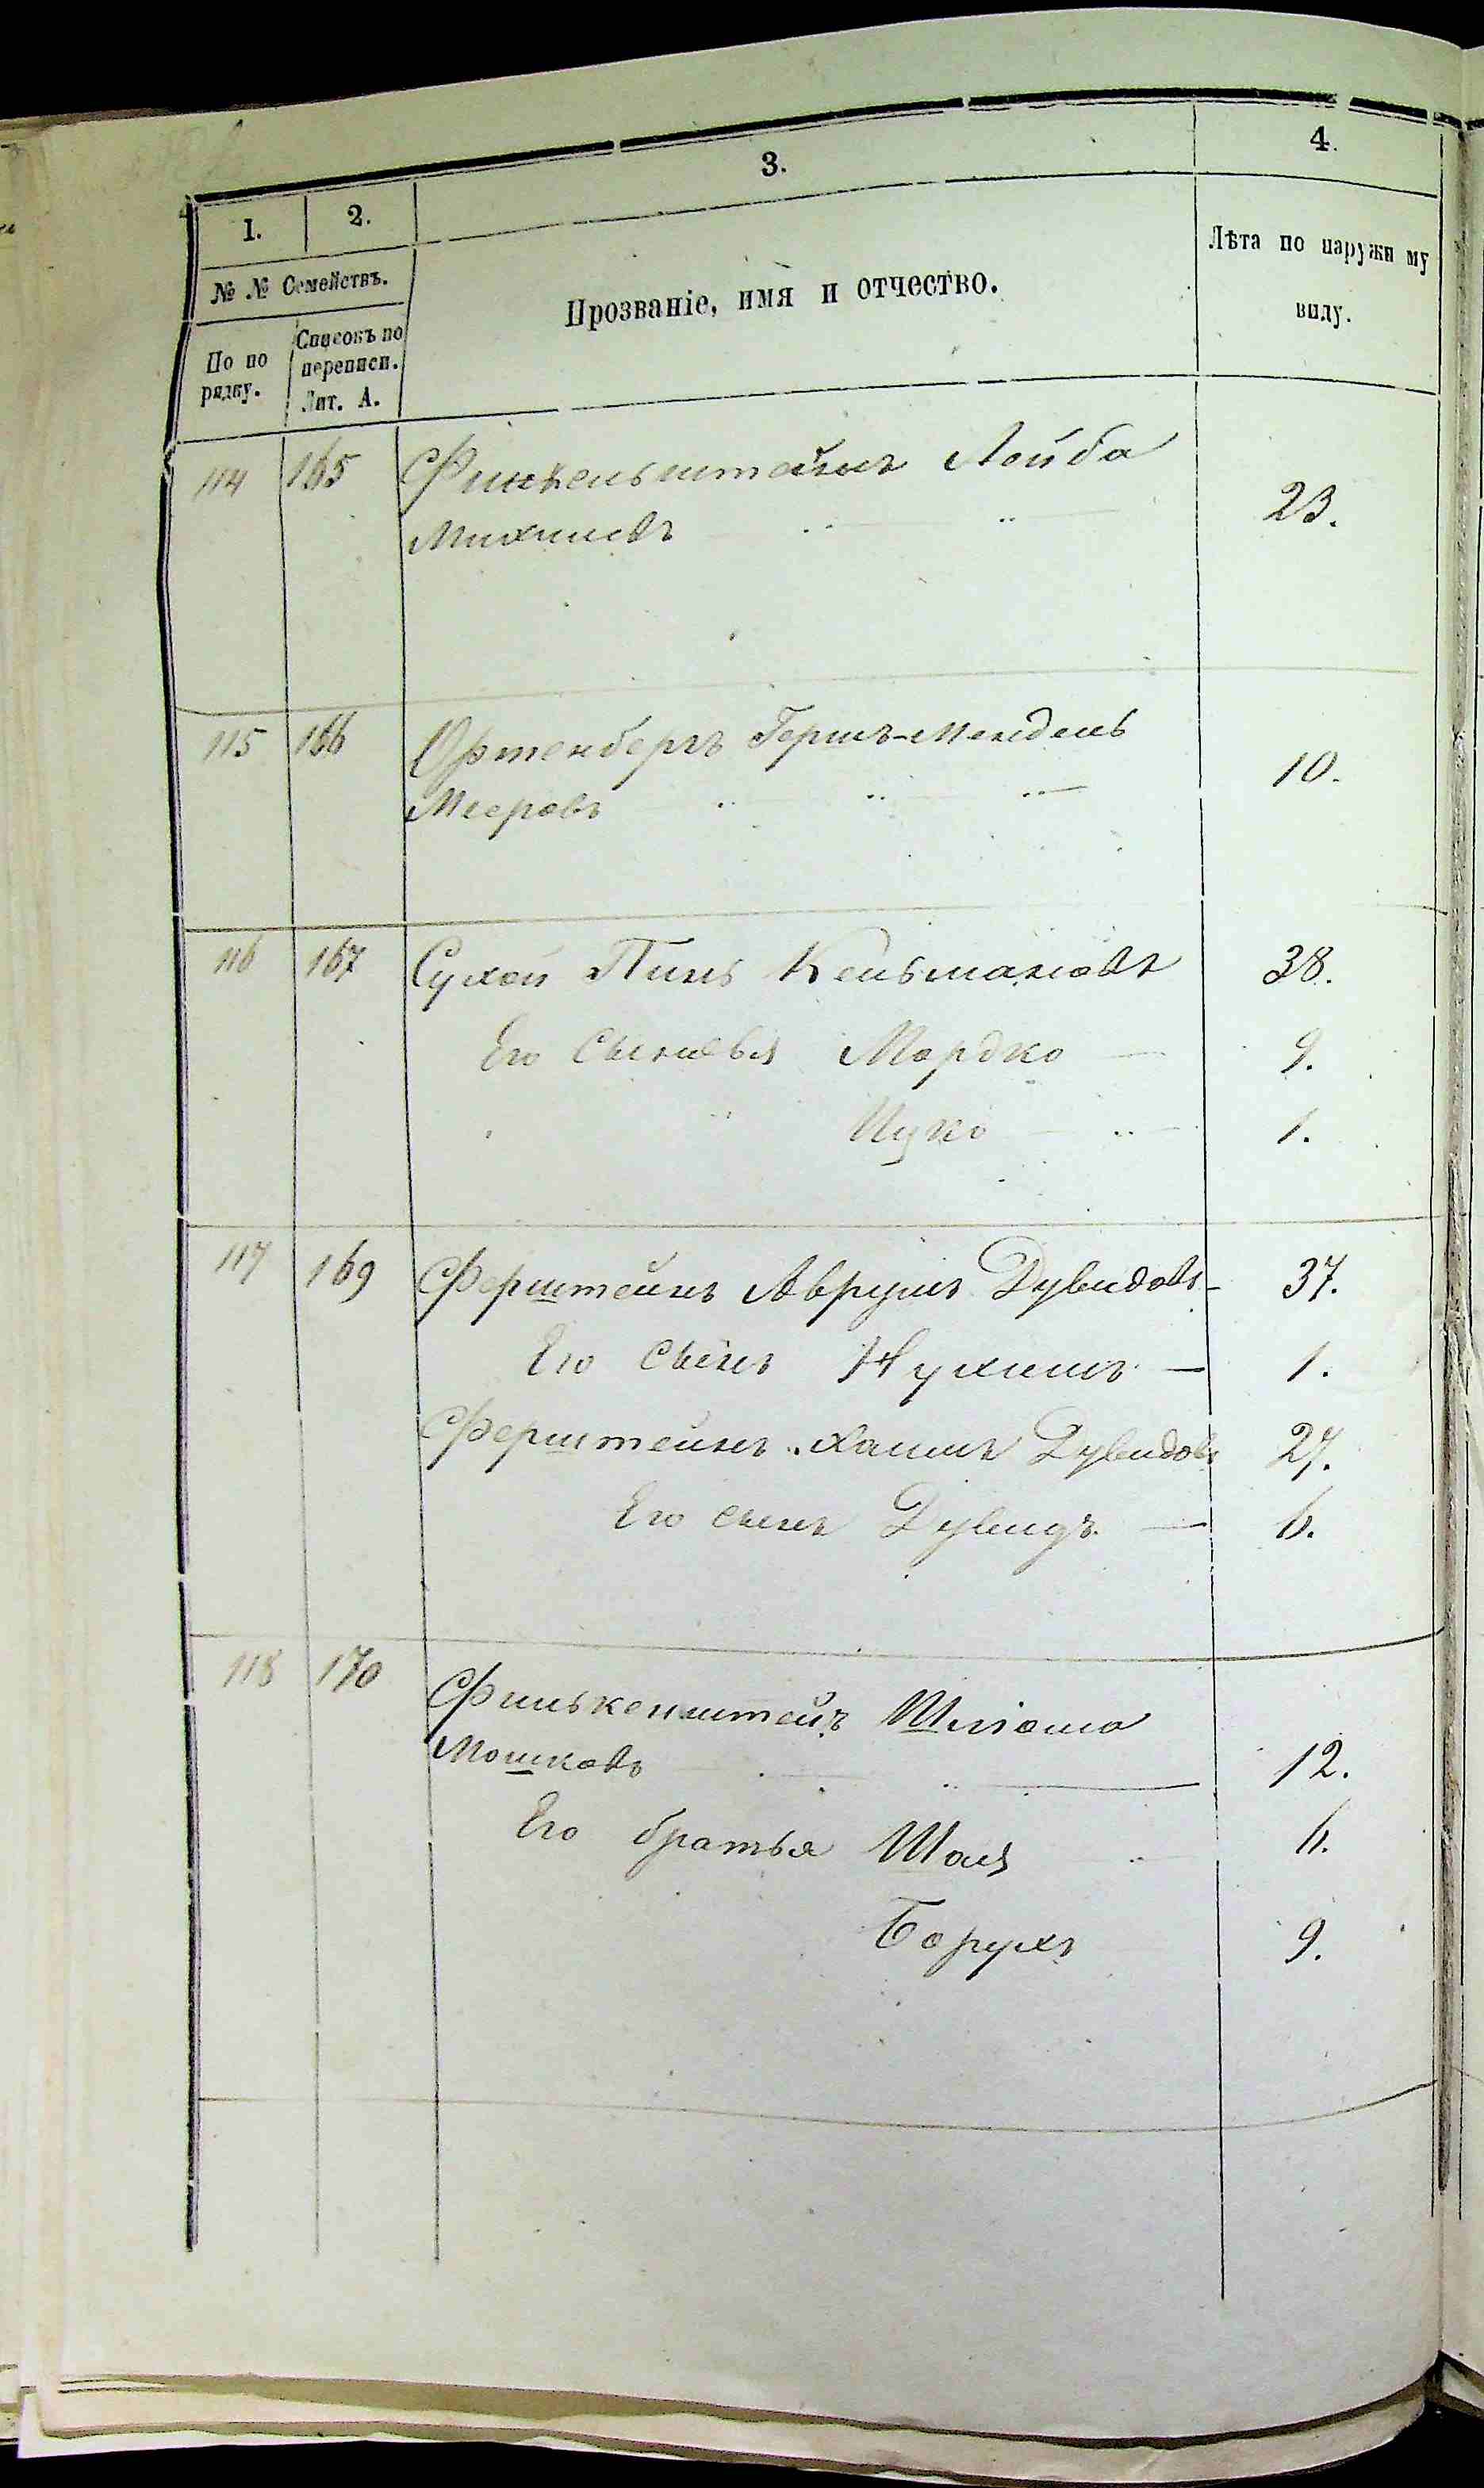 1.
2.
3.
4.
№ № Семействъ.
По по
рядку.
Списокъ по
переписи.
Лит. А.
Прозваніе, имя и отчество.
Лѣта по наружн му
виду.
114 165 Финкельштейнъ Лейба
Михилевъ 23.
115 166 Ортенбергъ Гершъ-Мендель
Мееровъ 10.
116 167 Сухой Пинь Кельмановъ 38.
Его сыновья Мордко 9.
Ицко 1.
117 169 Ферштейнъ Аврумъ Дувидовъ 37.
Его сынъ Нухимъ 1.
Ферштейнъ Хаимъ Дувидовъ 27.
Его сынъ Дувидъ 6.
118 170 Финькенштейнъ Шлiома
Мошковъ 12.
Его братья Шая 6.
Борухъ 9.